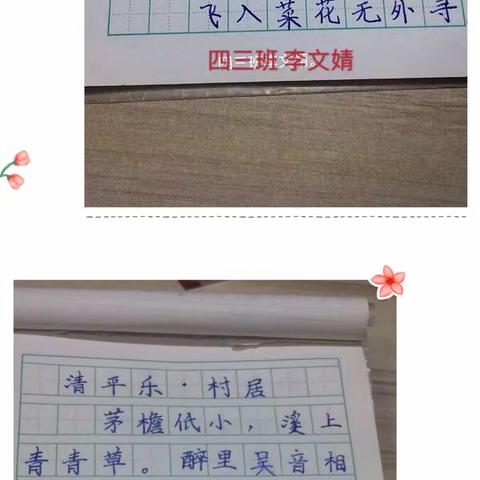 飞入菜花无外寻
四三班 李文婧
清平乐·村居
茅檐低小，溪上
青青草。醉里吴音相